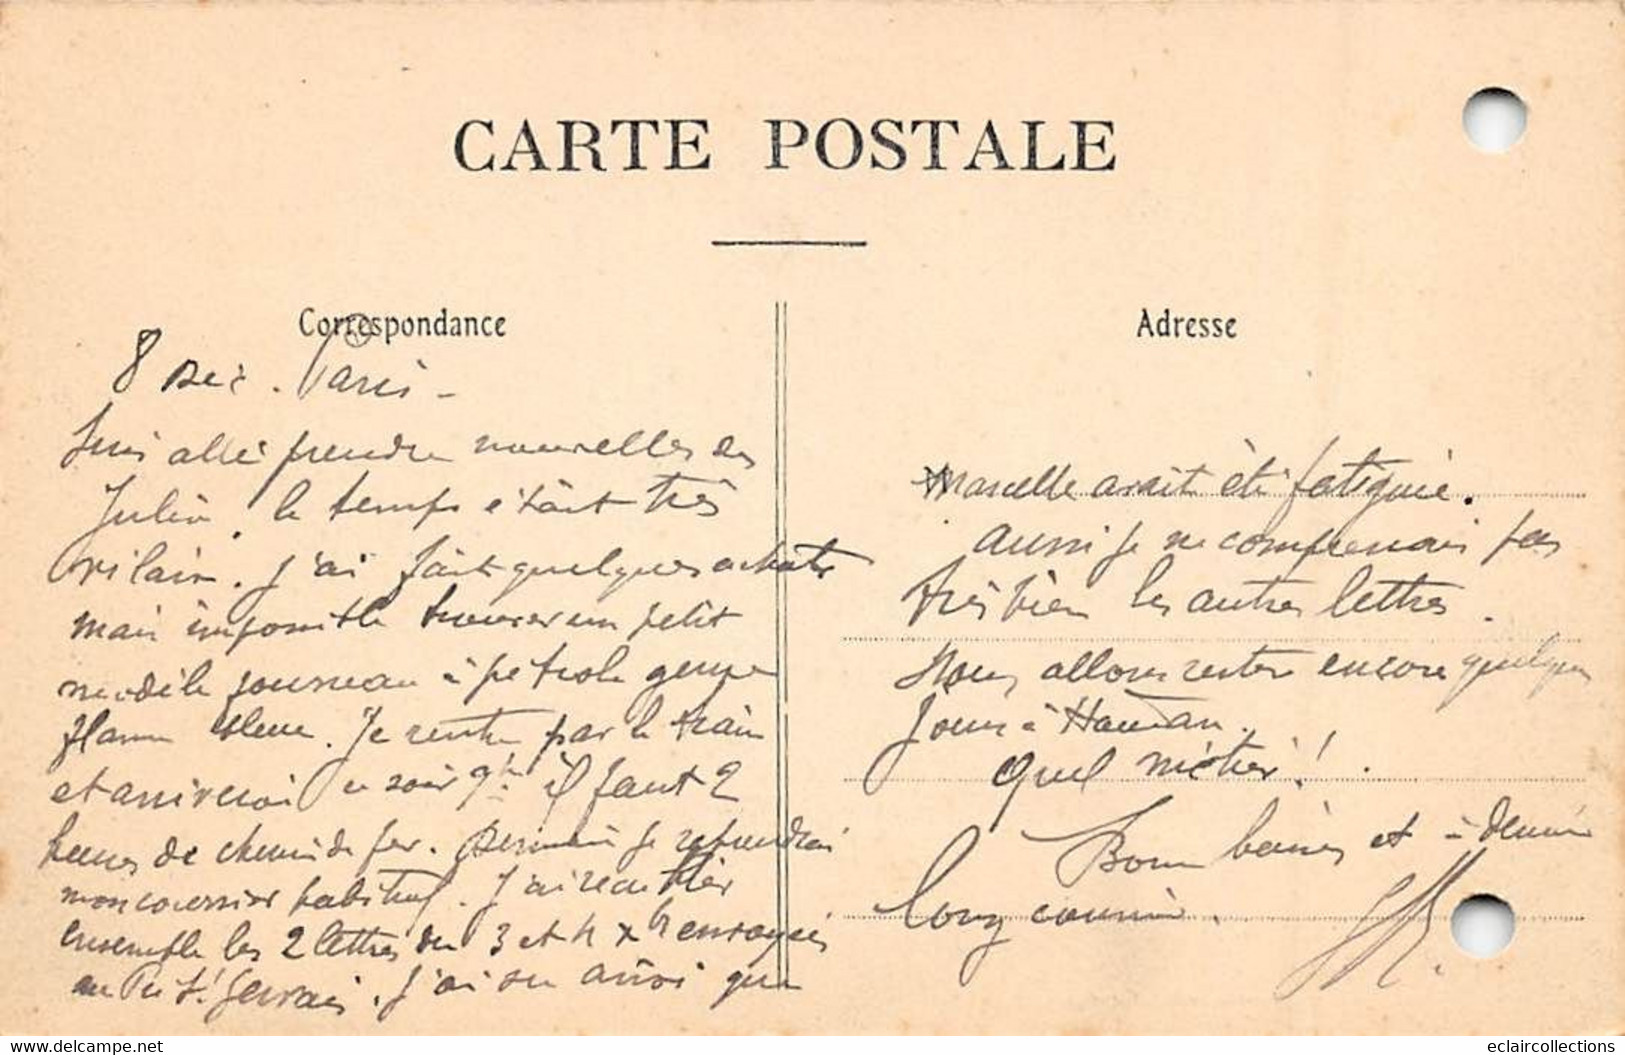 CARTE POSTALE
Correspondance
8 Dec. Paris -
Suis allé prendre nouvelles des
Julien. le temps était très
vilain. J'ai fait quelques achats
mais impossible trouver un petit
modèle fourneau à pétrole genre
flamme bleue. Je rentre par le train
et arriverai ce soir 9h. il faut 2
heures de chemin de fer. Demain je reprendrai
mon courrier habituel. J'ai reçu hier
ensemble les 2 lettres du 3 et 4 x envoyées
au St Gervais. J'ai su ainsi que
Adresse
Marcelle avait été fatiguée.
aussi je ne comprenais pas
très bien les autres lettres.
Nous allons rester encore quelques
jours à
Quel métier!
Bons baisers et à demain
long courrier.